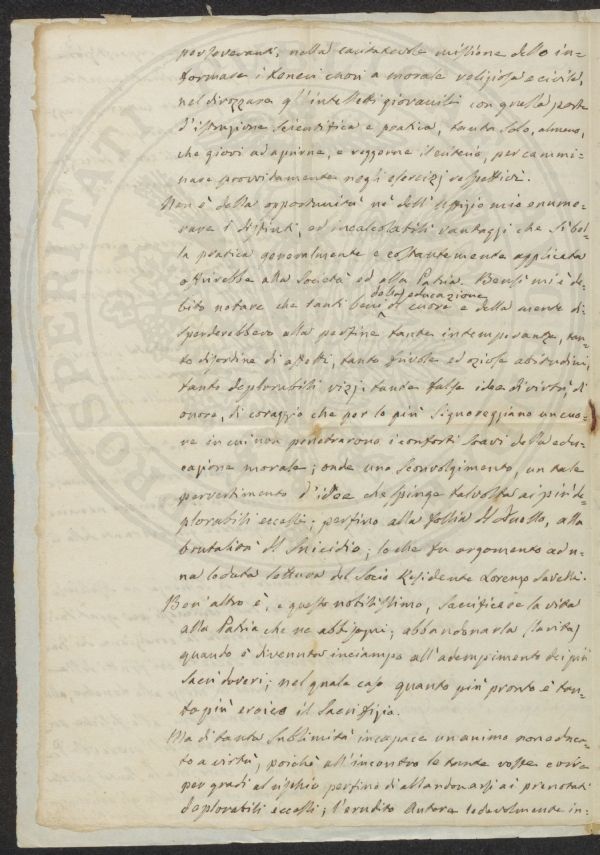 perseveranti, nella caritatevole missione dello in=
formare i teneri cuori a morale religiosa e civile,
nel dirozzare gl'intelletti giovanili con quella parte
d'istruzione scientifica e pratica, tanta solo, almeno,
che giovi ad aprirne, e reggerne il criterio, per cammi=
nare provvidamente negli esercizj rispettivi.
Non è della opportunità nè dell'Uffizio mio enume=
rare i distinti, ed incalcolabili vantaggi che sì bel=
la pratica generalmente e costantemente applicata
offrirebbe alla Società ed alla Patria. Bensì mi è de=
bito notare che tanti beni della educazione di cuore e della mente di=
sperderebbero alla perfine tante intemperanze, tan=
to disordine di affetti, tante frivole ed oziose abitudini,
tanti deplorabili vizj, tante false idee di virtù, di
onore, di coraggio che per lo più signoreggiano un cuo=
re in cui non penetrarono i conforti soavi della edu=
cazione morale; onde uno sconvolgimento, un tale
pervertimento d'idee che spinge talvolta ai più de=
plorabili eccessi; perfino alla follia del Duello, alla
brutalità del Suicidio; lo che fu argomento ad u=
na lodata lettura del Socio Residente Lorenzo Savelli.
Ben'altro è, e questo nobilissimo, sacrificare la vita
alla Patria che ne abbisogni; abbandonarla (la vita)
quando è divenuta inciampo all'adempimento dei più
sacri doveri; nel quale caso quanto più pronto è tan=
to più eroico il sacrifizio.
Ma di tanta sublimità incapace un animo non educa=
to a virtù, poichè all'incontro le tante volte corre
per gradi al rischio perfino di abbandonarsi ai prenotati
deplorabili eccessi; l'erudito Autore lodevolmente in=